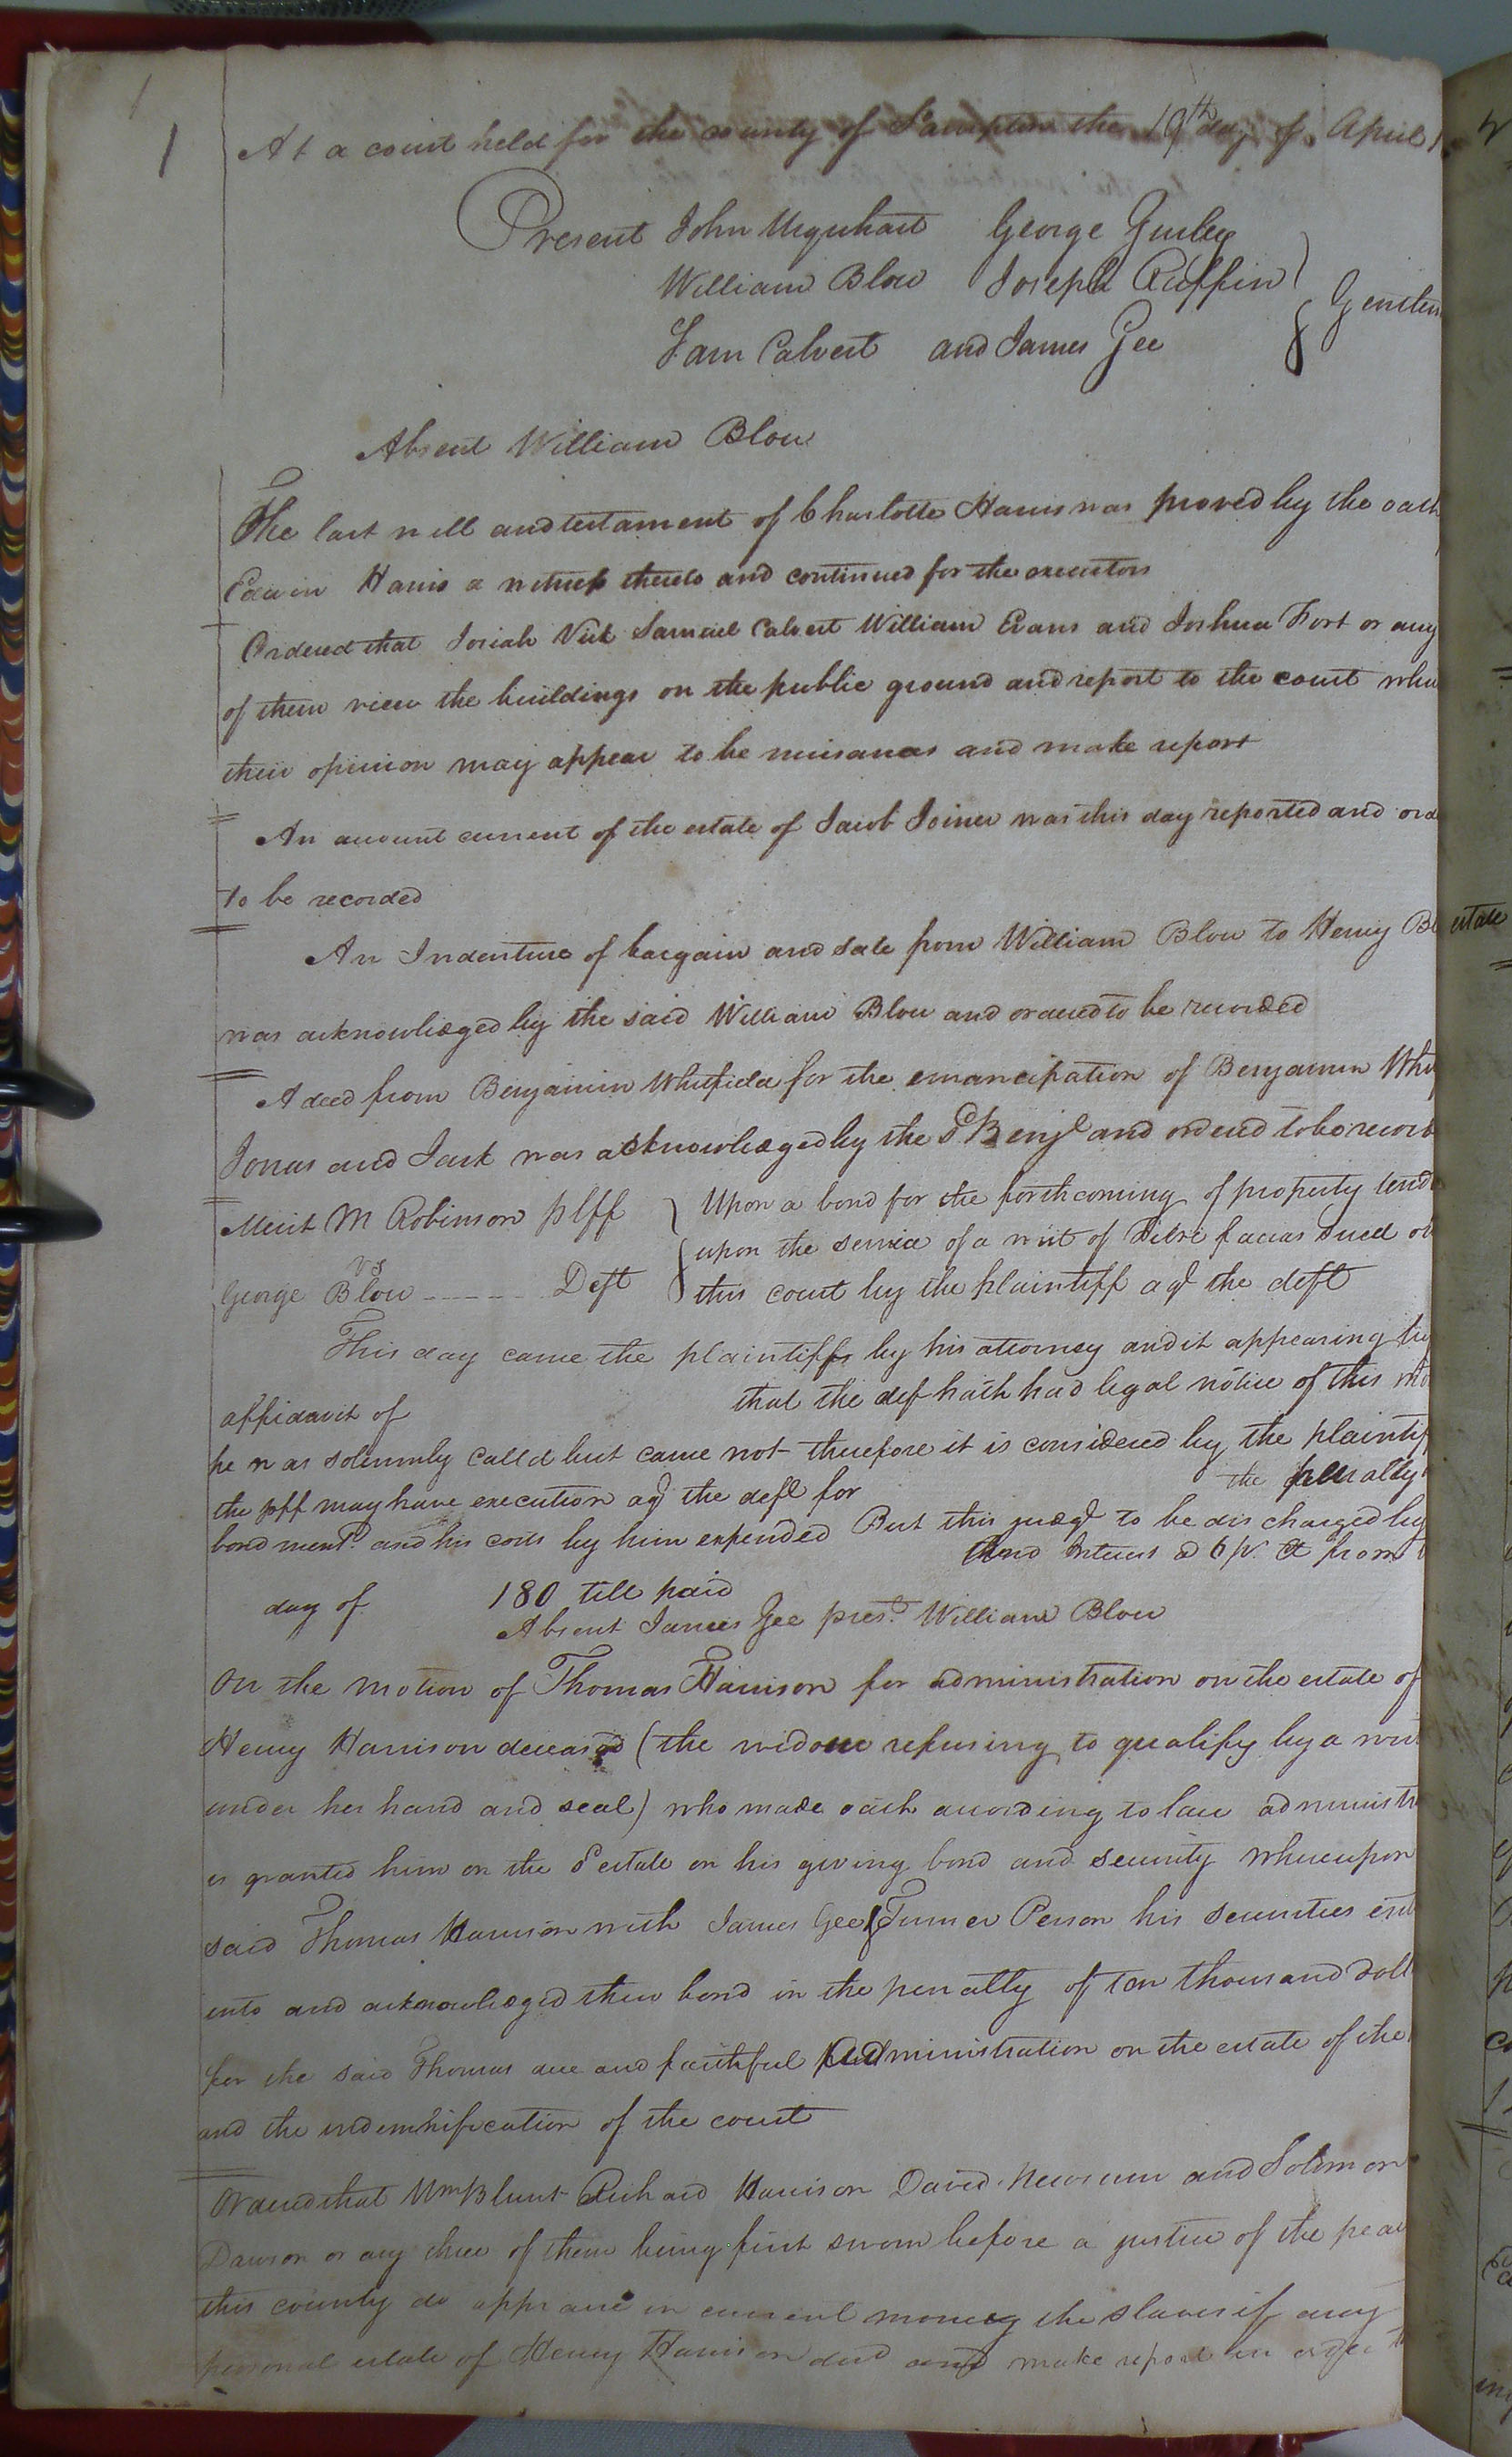 1
At a court held for the county of Southampton the 19th day of April
Present John Urquhart George Gurley
William Blow Joseph Ruffin
Sam Calvert and James Gee } Gentlem
Absent William Blow
The last will and testament of Charlotte Harris was proved by the oath
Edwin Harris a witness thereto and continued for the executors
Ordered that Josiah Vick Samuel Calvert William Evans and Joshua Fort or any
of them view the buildings on the public ground and report to the court whi
their opinion may appear to be nuisances and make report
An account current of the estate of Jacob Joiner was this day reported and ord
to be recorded
An Indenture of bargain and sale from William Blow to Henry Bl
was acknowledged by the said William Blow and ordered to be recorded
A deed from Benjamin Whitfield for the emancipation of Benjamin Whi
Jonas and Jack was acknowledged by the sd Benj and ordered to be recor
Merit M Robinson plff } Upon a bond for the forthcoming of property tend
vs upon the service of a writ of fieri facias sued ou
George Blow Deft } this court by the plaintiff agt the deft
This day came the plaintiff by his attorney and it appearing by
affidavit of that the def hath had legal notice of this mo
he was solemnly calld but came not therefore it is considered by the plaintif
the plff may have execution agt the deft for the penalty
bond ment.d and his costs by him expended But this judgt to be discharged by
And Interest @ 6 pr. Ct from
day of 180 till paid
Absent James Gee prest William Blow
On the motion of Thomas Harrison for administration on the estate of
Henry Harrison deceased (the widow refusing to qualify by a writ
under her hand and seal) who made oath according to law administr
is granted him on the sd estate on his giving bond and security whereupon
said Thomas Harrison with James Gee & Turner Person his securities ent
into and acknowledged their bond in the penalty of ten thousand doll
for the said Thomas due and faithful administration on the estate of the
and the indemnification of the court
Ordered that Wm Blunt Richard Harrison David Newsum and Solomon
Dawson or any three of them being first sworn before a justice of the peac
this county do appraise in current money the slaves if any
personal estate of Henry Harrison decd and make report in order
estate